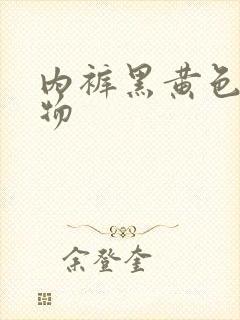 内裤黑黄色
物
余登奎